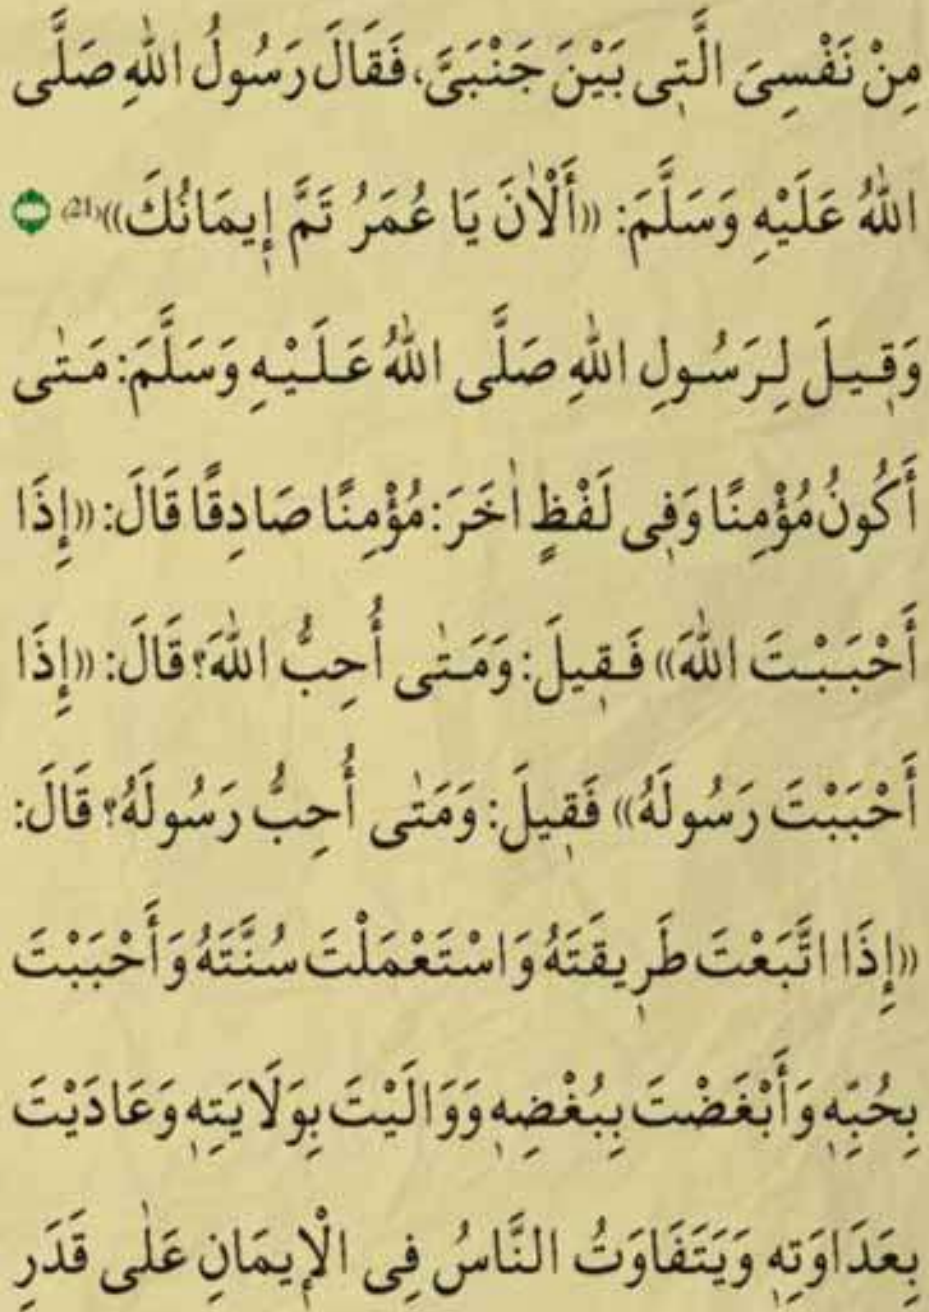 مِنْ نَفْسِىَ الَّتِى بَيْنَ جَنْبَىَّ، فَقَالَ رَسُولُ اللّٰهِ صَلَّى
اللّٰهُ عَلَيْهِ وَسَلَّمَ: «أَلْاٰنَ يَا عُمَرُ تَمَّ إِيمَانُكَ»(21)
وَقِيلَ لِرَسُولِ اللّٰهِ صَلَّى اللّٰهُ عَلَيْهِ وَسَلَّمَ: مَتٰى
أَكُونُ مُؤْمِنًا وَفِى لَفْظٍ اٰخَرَ: مُؤْمِنًا صَادِقًا قَالَ: «إِذَا
أَحْبَبْتَ اللّٰهَ» فَقِيلَ: وَمَتٰى أُحِبُّ اللّٰهَ؟ قَالَ: «إِذَا
أَحْبَبْتَ رَسُولَهُ» فَقِيلَ: وَمَتٰى أُحِبُّ رَسُولَهُ؟ قَالَ:
«إِذَا اتَّبَعْتَ طَرِيقَتَهُ وَاسْتَعْمَلْتَ سُنَّتَهُ وَأَحْبَبْتَ
بِحُبِّهٖ وَأَبْغَضْتَ بِبُغْضِهٖ وَوَالَيْتَ بِوَلَايَتِهٖ وَعَادَيْتَ
بِعَدَاوَتِهٖ وَيَتَفَاوَتُ النَّاسُ فِى الْإِيمَانِ عَلٰى قَدَرِ